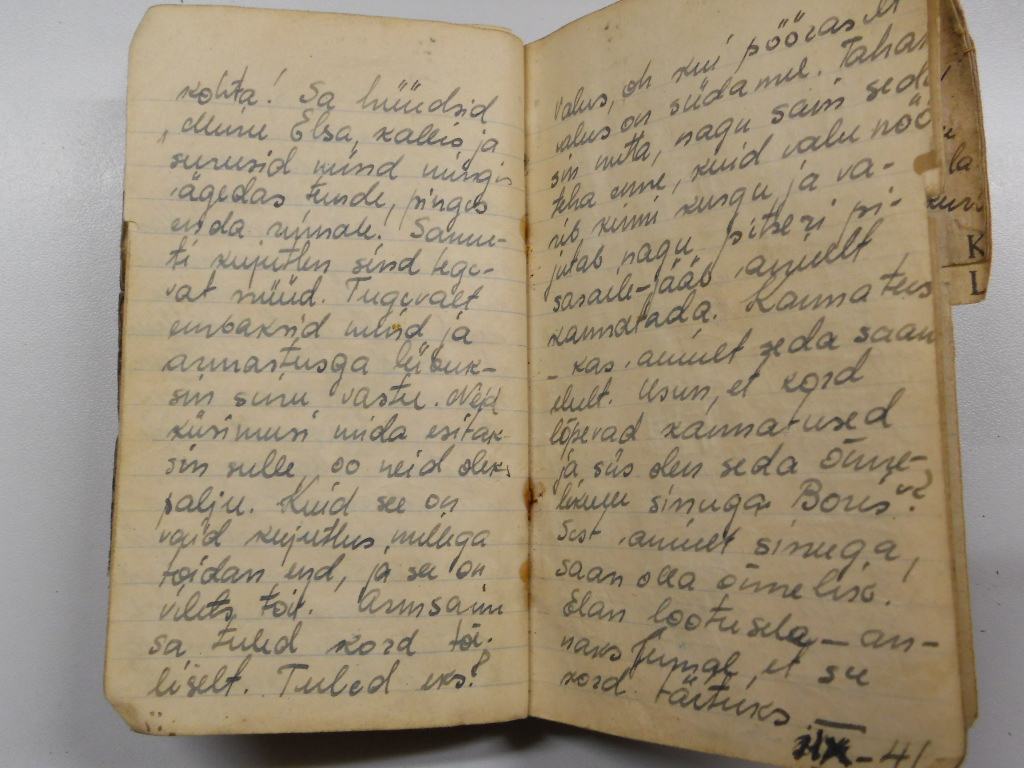 kohta! Sa hüüdsid
„Minu Elsa, kallis ja
surusid mind mingis
ägedas tunde, pinges
enda rinnale. Samu-
ti kujutlen sind tege-
vat nüüd. Tugevalt
embaksid mind ja
armastusga liibuk-
sin sinu vastu. Neid
küsimusi mida esitak-
sin sulle, oo neid oleks
palju. Kuid see on
vaid kujutlus, millega
toidan end, ja see on
vilets toit. Armsaim
sa tuled kord tõe-
liselt. Tuled eks?
valus, oh kui pööraselt
valus on südamel. Tahak
sin nutta, nagu sain seda
teha enne, kuid valu nöö
rib kinni kurgu ja va-
jutab nagu pitseri pi-
saraile - jääb ainult
kannatada. Kannatus-
- kas ainult seda saan
elult. Usun, et kord
lõpevad kannatused
ja siis olen seda õnne-
likum sinuga Boris?
Sest ainult sinuga,
saan olla õnnelik.
Elan lootusela - an-
naks Jumal, et su
kord täituks.
- 41
la
K
L